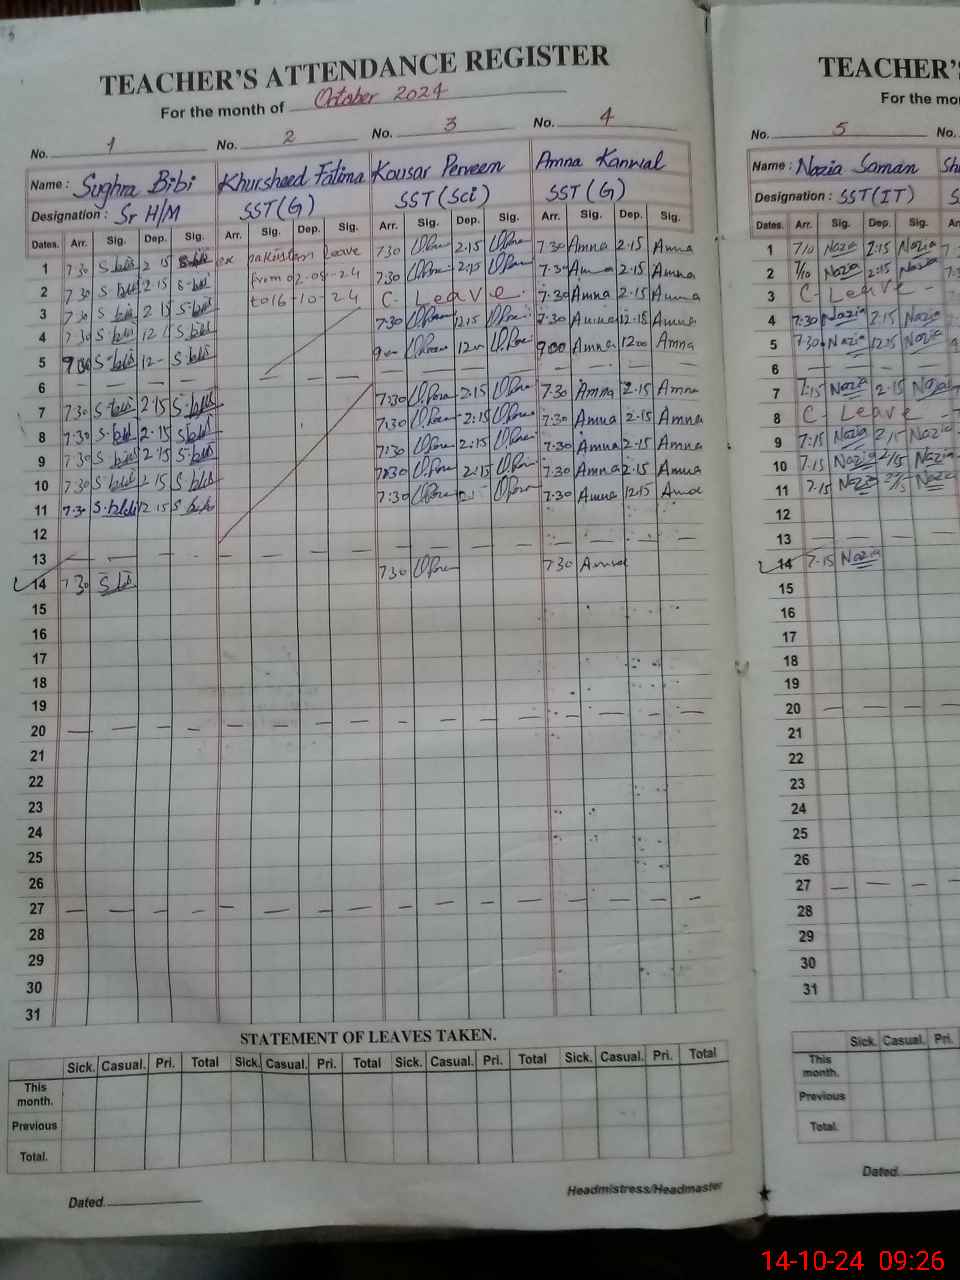 TEACHER'S ATTENDANCE REGISTER
For the month of October 2024
No. 1 No. 2 No. 3 No. 4
Name : Sughra Bibi Khursheed Fatima Kousar Perveen Amna Kanwal
Designation : Sr H/M SST(G) SST(Sci) SST(G)
Dates. Arr. Sig. Dep. Sig. Arr. Sig. Dep. Sig. Arr. Sig. Dep. Sig. Arr. Sig. Dep. Sig.
1 7 30 S bibi 2 15 S-bibi ex pakistan leave 7 30 2.15 7.30 Amna 2.15 Amna
2 7 30 S bibi 2 15 S-bibi from 02-09-24 7:30 2:15 7.30 Amna 2.15 Amna
3 7 30 S bibi 2 15 S-bibi to 16-10-24 C- Leave 7.30 Amna 2.15 Amna
4 7 30 S bibi 12 15 S bibi 7:30 12:15 7.30 Amna 12.15 Amna
5 9 00 S-bibi 12- S bibi 9 00 12 00 9 00 Amna 12 00 Amna
6 — — — — — — — — — — — —
7 7 30 S-bibi 2 15 S-bibi 7:30 2:15 7.30 Amna 2.15 Amna
8 7:30 S-bibi 2-15 S bibi 7:30 2:15 7.30 Amna 2.15 Amna
9 7 30 S bibi 2 15 S-bibi 7:30 2:15 7.30 Amna 2.15 Amna
10 7 30 S bibi 2 15 S bibi 7:30 2:15 7.30 Amna 2.15 Amna
11 7.30 S-bibi 12 15 S bibi 7:30 7.30 Amna 12.15 Amna
12
13 — — — — — — — — — — — —
14 7 30 S bibi 7 30 7 30 Amna
15
16
17
18
19
20 — — — — — — — — — — — —
21
22
23
24
25
26
27 — — — — — — — — — — — —
28
29
30
31
STATEMENT OF LEAVES TAKEN.
Sick. Casual. Pri. Total Sick. Casual. Pri. Total Sick. Casual. Pri. Total Sick. Casual. Pri. Total
This month.
Previous
Total.
Dated. Headmistress/Headmaster
TEACHER'S
For the mo
No. 5 No.
Name : Nazia Saman Sh
Designation : SST(IT) S
Dates. Arr. Sig. Dep. Sig. Arr
1 7/10 Nazia 2:15 Nazia
2 7/10 Nazia 2:15 Nazia
3 C- Leave -
4 7:30 Nazia 2.15 Nazia
5 7:30 Nazia 12:15 Nazia
6 — — — —
7 7:15 Nazia 2.15 Nazia
8 C- Leave -
9 7:15 Nazia 2/15 Nazia
10 7.15 Nazia 2/15 Nazia
11 7.15 Nazia 2/15 Nazia
12
13 — — — —
14 7.15 Nazia
15
16
17
18
19
20 — — — —
21
22
23
24
25
26
27 — — — —
28
29
30
31
Sick. Casual. Pri.
This month.
Previous
Total.
Dated.
14-10-24 09:26